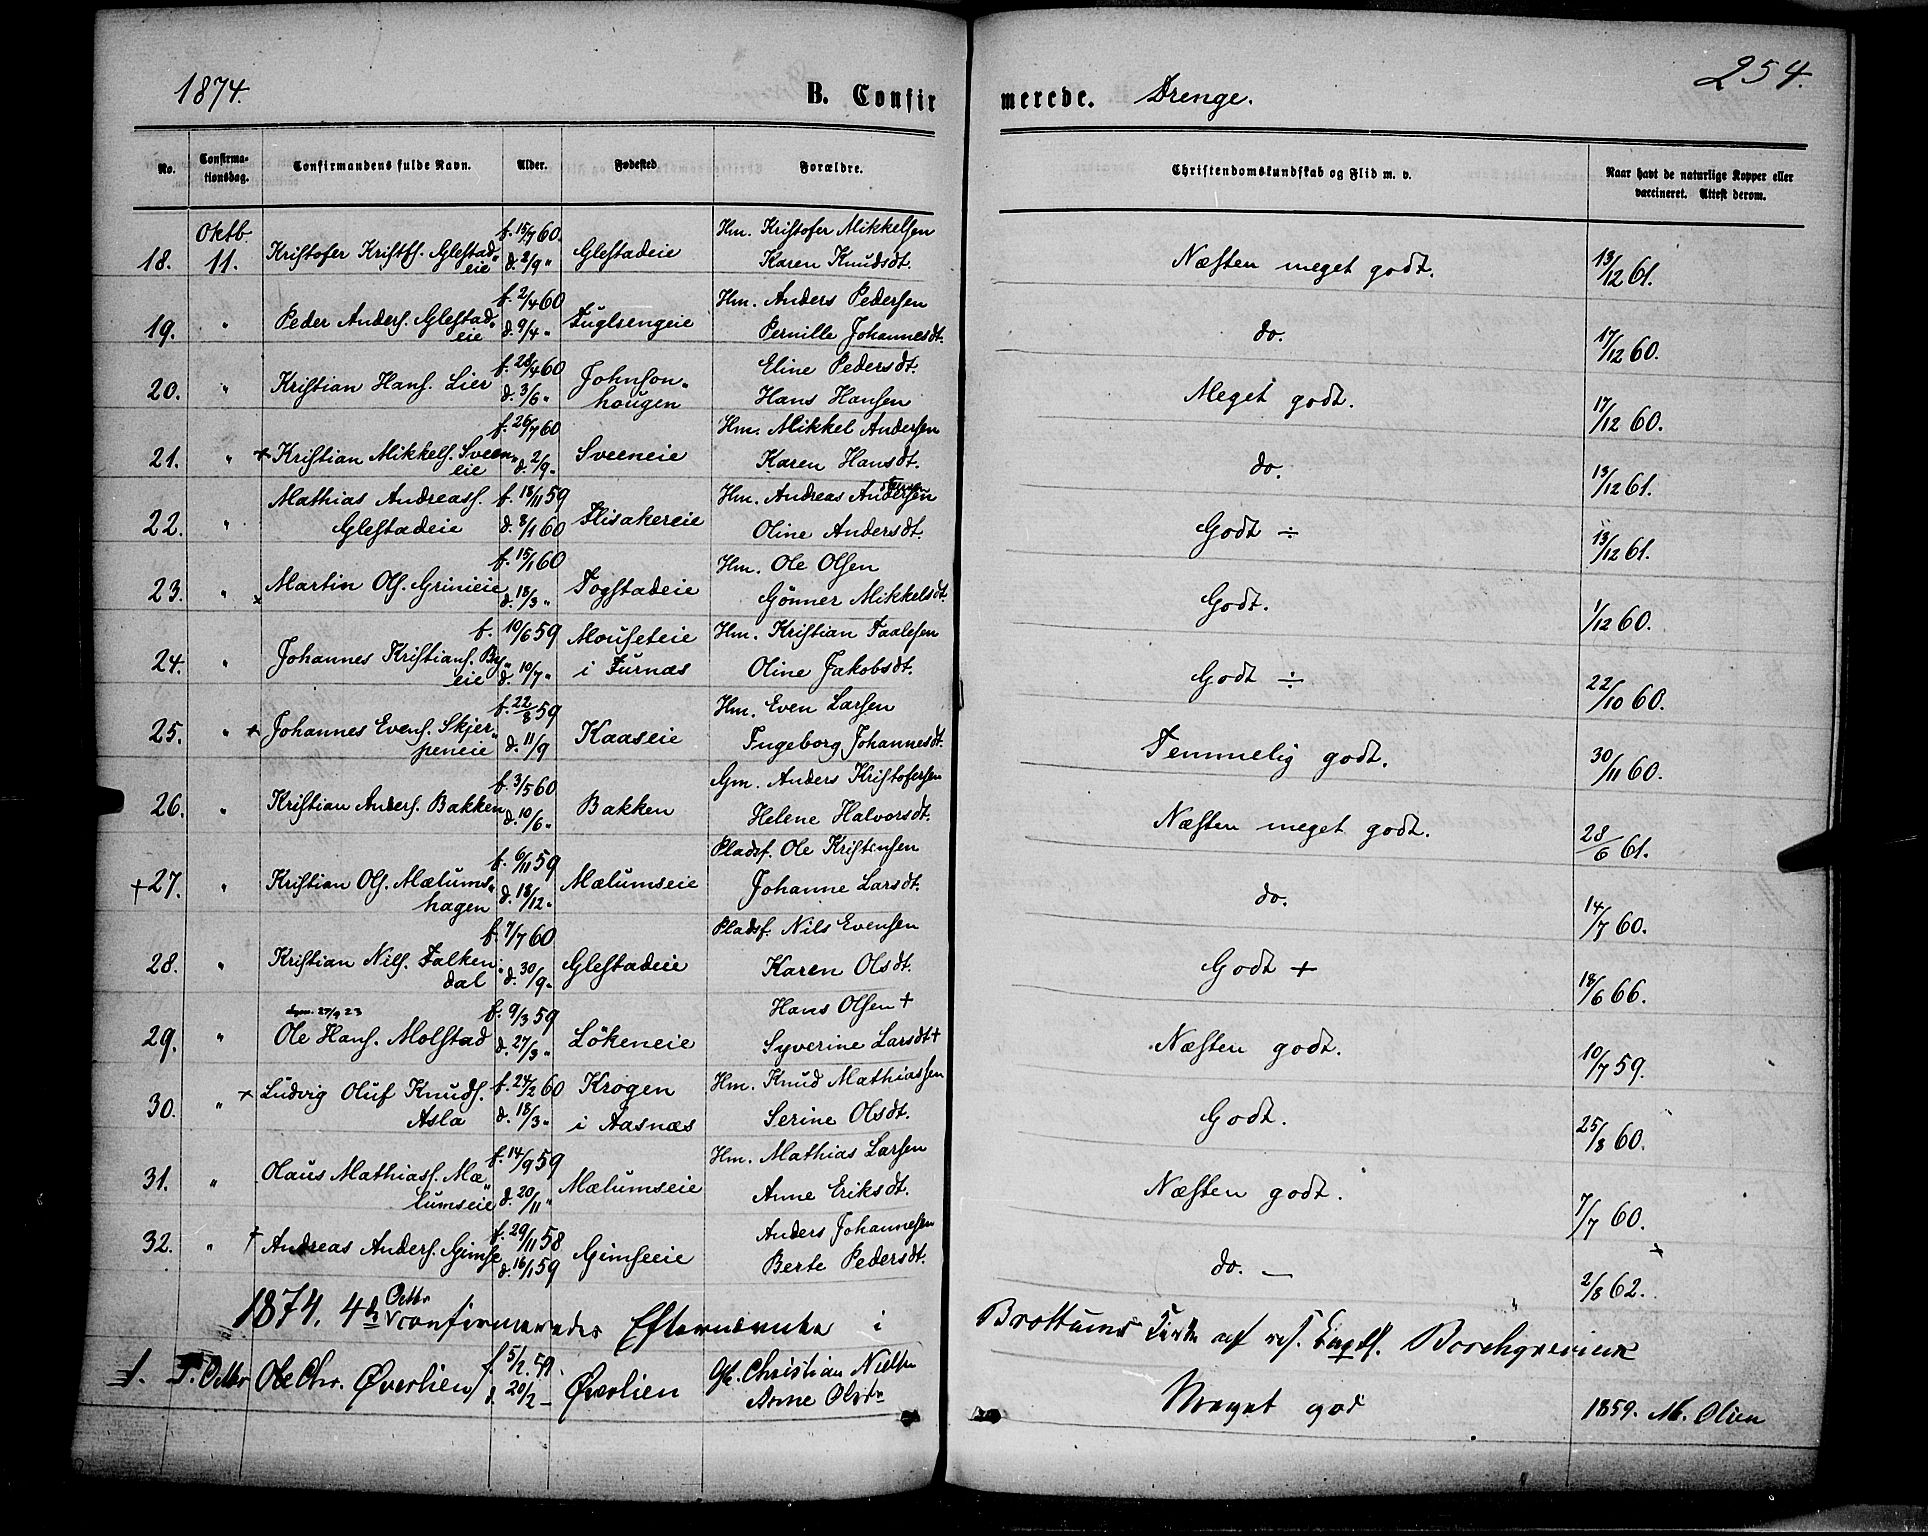 1874.
B. Confirmerede. Drenge.
254.
No. Confirmationsdag. Confirmandens fulde Navn. Alder. Fødested Forældre. Christendomskundskab og Flid m. v. Naar havt de naturlige Kopper eller vaccineret. Attest derom.
Oktb. f. 15/7 60. Hm. Kristofer Mikkelsen
18. 11. Kristofer Kristfs. Glestad- Glestadeie Næsten meget godt. 13/12 61.
eie d. 2/9 " Karen Knudsdt.
f. 2/4 60 Hm. Anders Pedersen
19. " Peder Anders. Glestad- Fuglsengeie do. 17/12 60.
eie d. 9/4 " Pernille Johannesdt.
f. 28/4 60 Eline Pedersdt.
20. " Kristian Hans. Lier Johnson- Meget godt. 17/12 60.
d. 3/6 " hougen Hans Hansen
f. 26/7 60 Hm. Mikkel Andersen
21. " + Kristian Mikkels. Sveen- Sveeneie do. 13/12 61.
eie d. 2/9 " Karen Hansdt.
Mathias Andreass. f. 18/11 59 Hm. Andreas Andersen
22. " Glestadeie d. 8/1 60 Flisakereie Oline Andersdt. Godt ÷ 13/12 61.
f. 15/1 60 Hm. Ole Olsen
23. " x Martin Ols. Grinieie d. 18/3 " Fogstadeie Gönner Mikkelsdt. Godt. 1/12 60.
f. 10/6 59 Mouseteie Hm. Kristian Taalesen
24. " Johannes Kristians. By- i Furnæs Godt ÷ 22/10 60.
eie d. 10/7 " Oline Jakobsdt.
f. 22/8 59 Hm. Even Larsen
25. " + Johannes Evens. Skjer- Kaaseie Temmelig godt. 30/11 60.
peneie d. 11/9 Ingeborg Johannesdt.
f. 3/5 60 Gm. Anders Kristofersen
26. " Kristian Anders. Bakken d. 10/6 " Bakken Helene Halvorsdt. Næsten meget godt. 28/6 61.
f. 6/11 59 Pladsf. Ole Kristensen
+27. " Kristian Ols. Mælums- Mælumseie Johanne Larsdt. do. 14/7 60.
hagen d. 18/12 "
f. 7/7 60 Pladsf. Nils Evensen
28. " Kristian Nils. Falken- Glestadeie Karen Olsdt. Godt + 18/6 66.
dal d. 30/9 "
27/9 23 f. 9/3 59 Hans Olsen +
29. " Ole Hans. Molstad d. 27/3 " Lökeneie Syverine Larsdt + Næsten godt. 10/7 59.
30. " + Ludvig Oluf Knuds. f. 24/2 60 Krogen Hm. Knud Mathiassen Godt. 25/8 60.
Asla d. 18/3 " i Aasnæs Serine Olsdt.
f. 14/9 59 Hm. Mathias Larsen
31. " Olaus Mathiass. Mæ- Mælumseie Næsten godt. 7/7 60.
lumseie d. 20/11 " Anne Eriksdt.
f. 29/11 58 Anders Johannesen
32. " + Andreas Anders. Gimse d. 16/1 59 Gimseeie Berte Pedersdt. do. — 2/8 62.
1874. 4de Octbr confirmeredes Efternævnte i Brottums Kirke af res. Borchgrevink
1. Octbr Ole Chr. Øverlien f. 5/2 59. Øverlien Christian Nielsen Meget god 1859. M. Olsen
d. 20/2 — Anne Olsdr